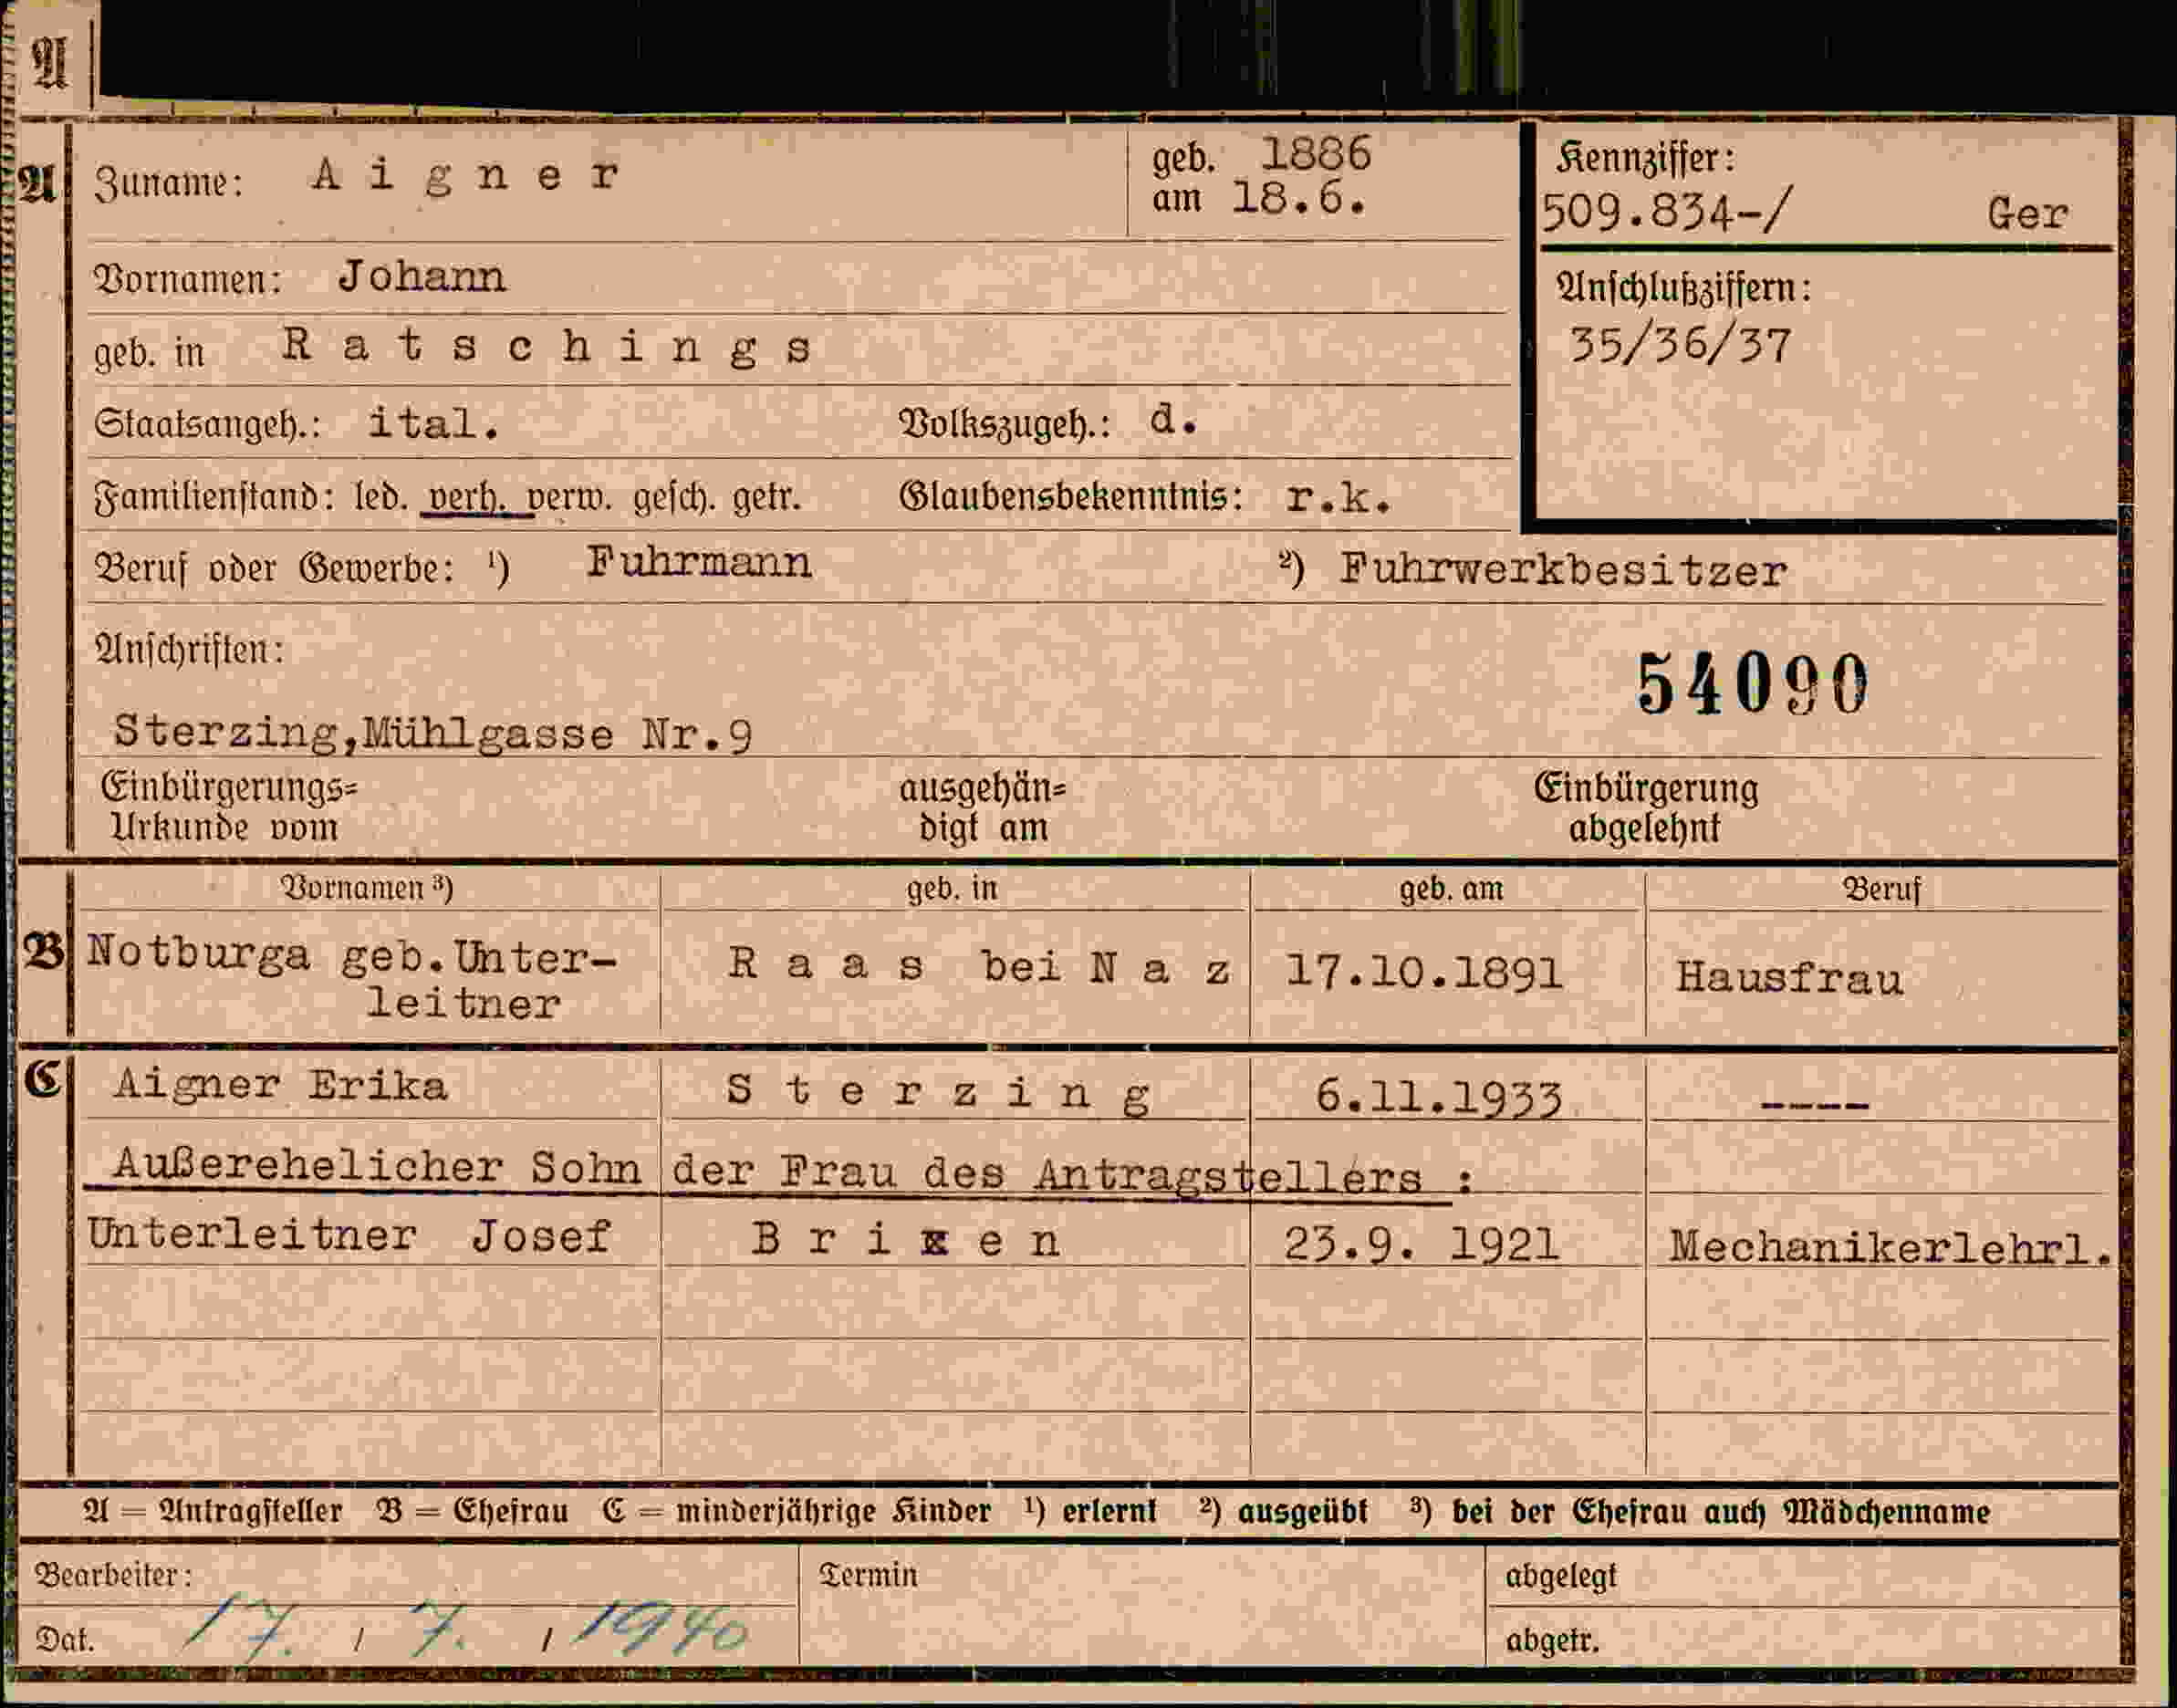 A
A Zuname: Aigner geb. 1886
am 18.6.
Kennziffer:
509.834-/ Ger
Vornamen: Johann
Anschlußziffern:
35/36/37
geb. in Ratschings
Staatsangeh.: ital. Volkszugeh.: d.
Familienstand: led. verh. verw. gesch. getr. Glaubensbekenntnis: r.k.
Beruf oder Gewerbe: ¹) Fuhrmann ²) Fuhrwerkbesitzer
Anschriften:
54090
Sterzing,Mühlgasse Nr.9
Einbürgerungs= ausgehän= Einbürgerung
Urkunde vom digt am abgelehnt
Vornamen ³) geb. in geb. am Beruf
B Notburga geb.Unter- Raas bei Naz 17.10.1891 Hausfrau
leitner
C Aigner Erika Sterzing 6.11.1933 ----
Außerehelicher Sohn der Frau des Antragstellers :
Unterleitner Josef Brixen 23.9. 1921 Mechanikerlehrl.
A = Antragsteller B = Ehefrau C = minderjährige Kinder ¹) erlernt ²) ausgeübt ³) bei der Ehefrau auch Mädchenname
Bearbeiter: Termin abgelegt
Dat. 17. / 7. / 1940 abgetr.